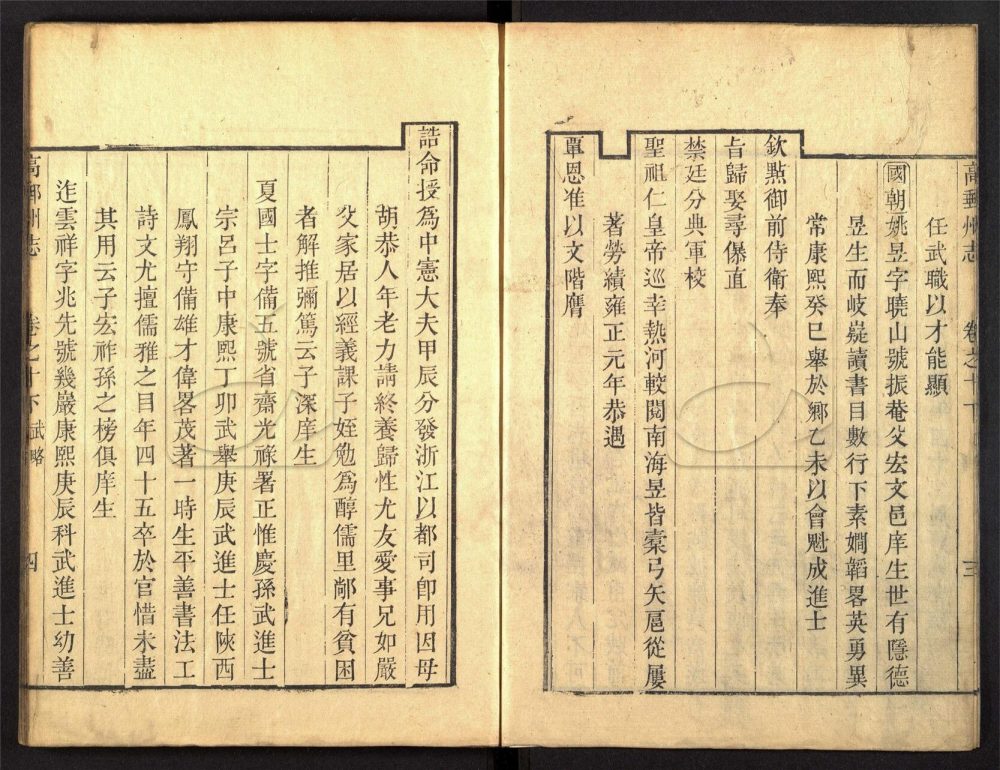 高郵州志 卷之十下 三
任武職以才能顯
國朝姚昱字曉山號振菴父宏文邑庠生世有隱德
昱生而岐嶷讀書目數行下素嫺韜畧英勇異
常康熙癸巳舉於鄉乙未以會魁成進士
欽點御前侍衛奉
旨歸娶尋儤直
禁廷分典軍校
聖祖仁皇帝巡幸熱河較閱南海昱皆櫜弓矢扈從屢
著勞績雍正元年恭遇
覃恩准以文階膺
誥命授爲中憲大夫甲辰分發浙江以都司卽用因母
胡恭人年老力請終養歸性尤友愛事兄如嚴
父家居以經義課子姪勉爲醇儒里鄰有貧困
者解推彌篤云子深庠生
夏國士字備五號省齋光祿署正惟慶孫武進士
宗呂子中康熙丁卯武舉庚辰武進士任陝西
鳳翔守備雄才偉畧茂著一時生平善書法工
詩文尤擅儒雅之目年四十五卒於官惜未盡
其用云子宏祚孫之榜俱庠生
迮雲祥字兆先號幾巖康熙庚辰科武進士幼善
高郵州志 卷之十下 武略 四